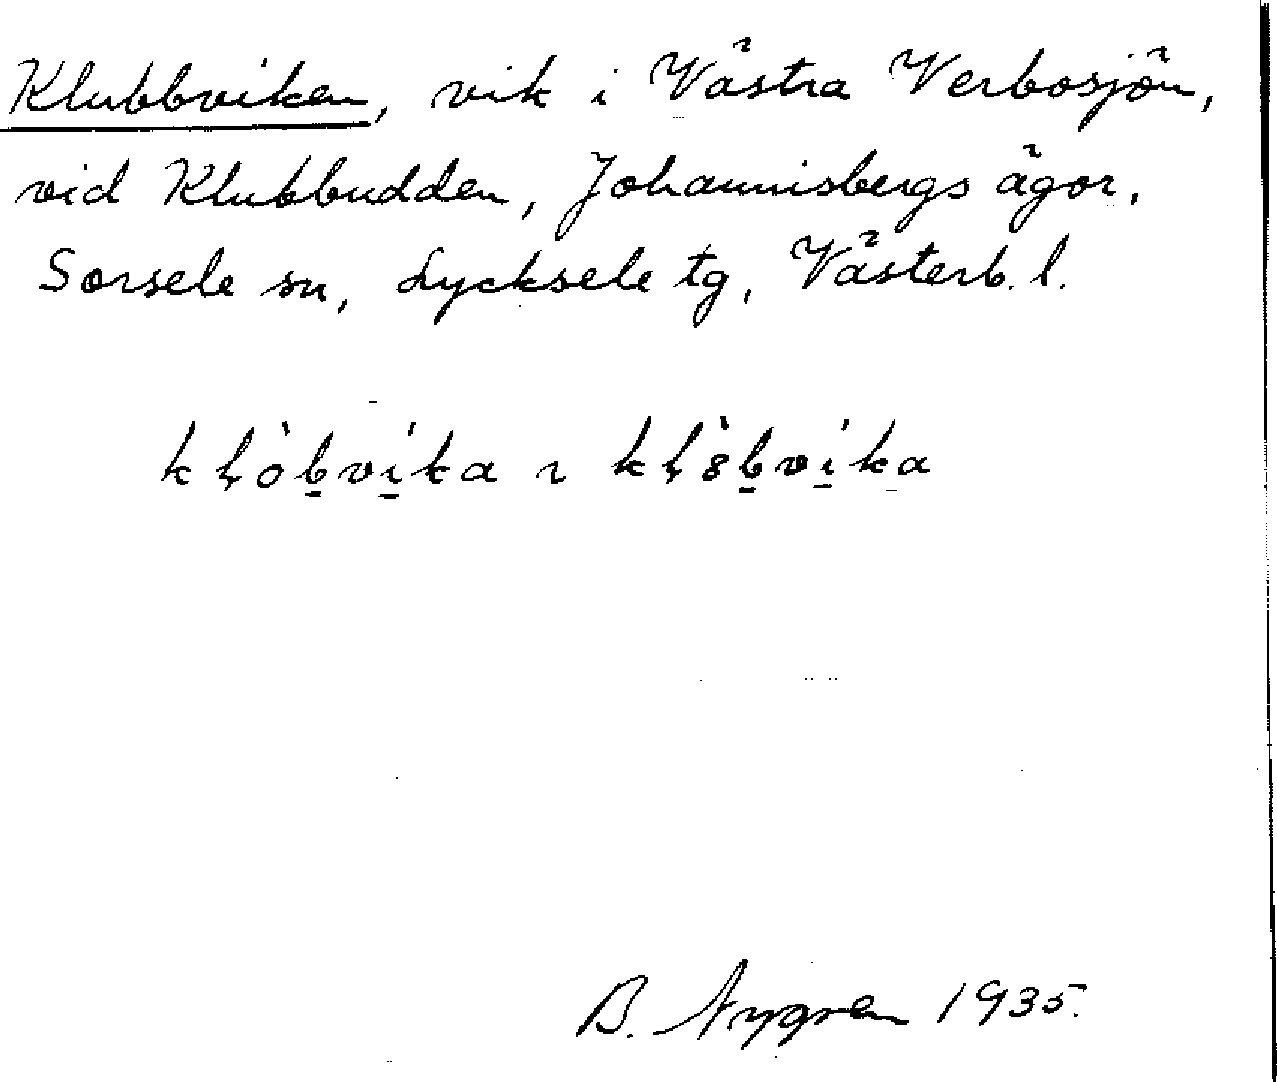 Klubbviken, vik i Västra Verbosjön,
vid Klubbudden, Johannisbergs ägor,
Sorsele sn, Lycksele tg, Västerb. l.
kḷòb̲vi̲̍ka ɿ kḷ8̀b̲vi̲̍ka
B. Nygren 1935.